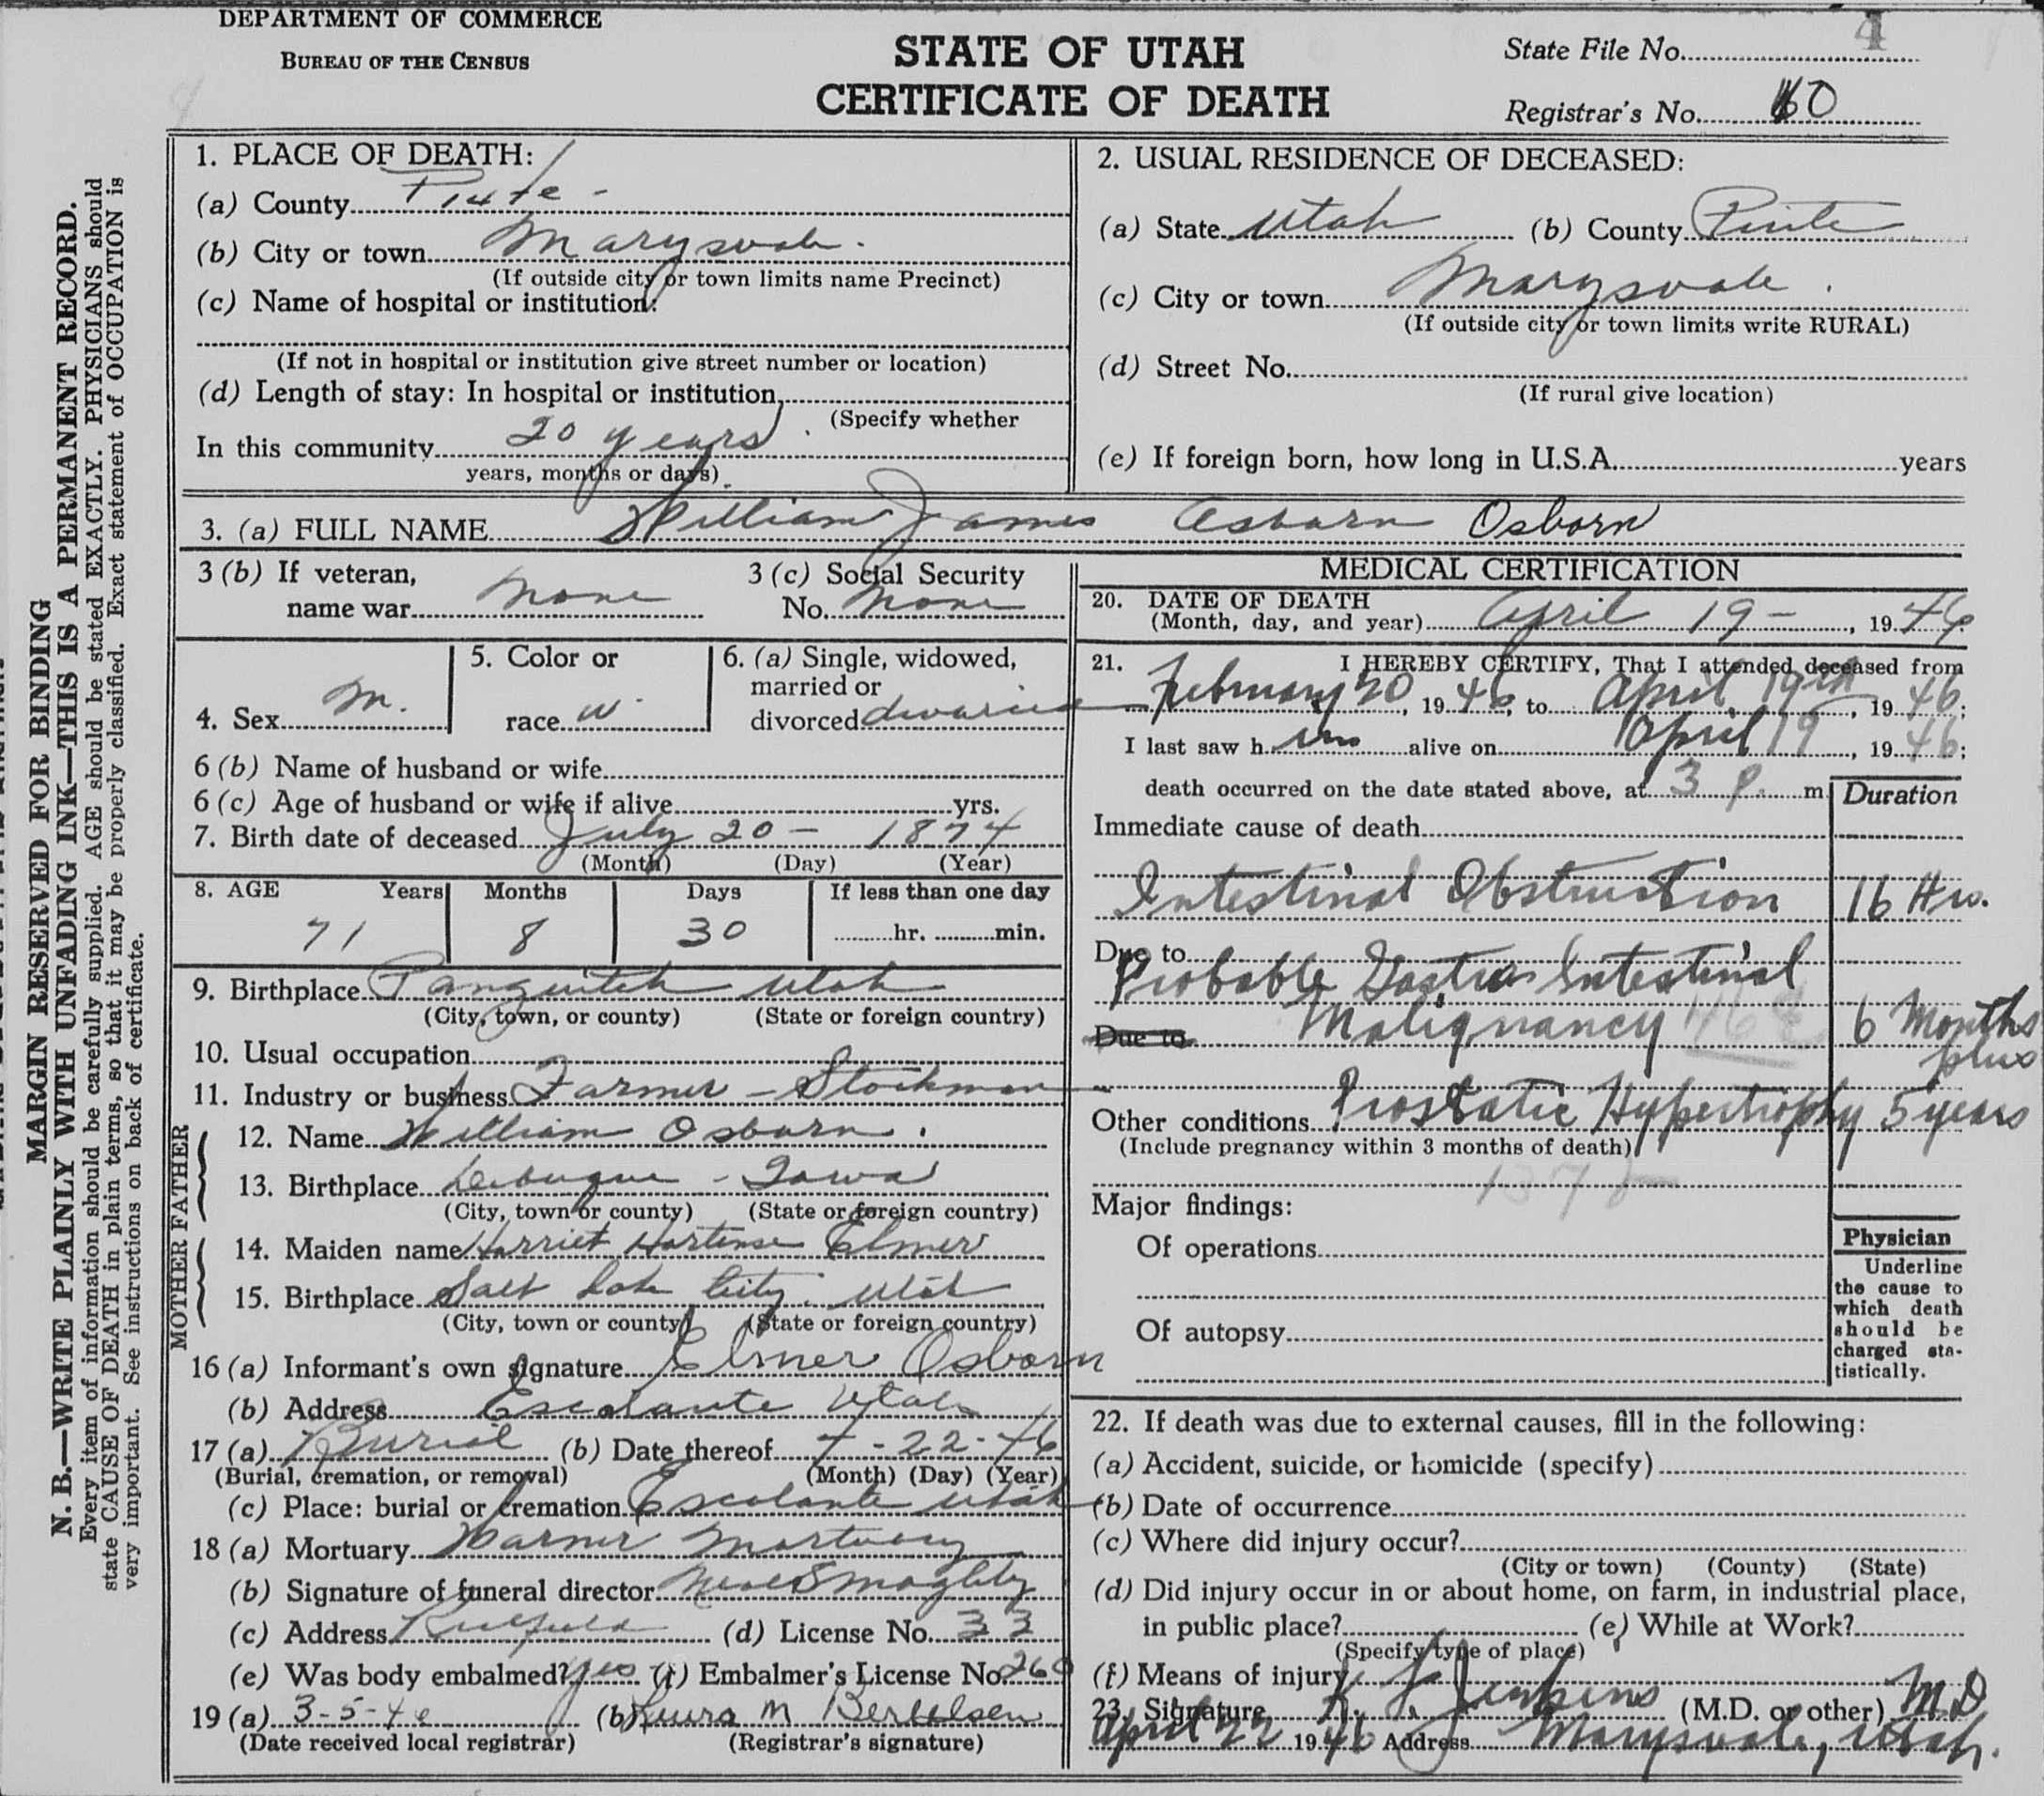 DEPARTMENT OF COMMERCE
BUREAU OF THE CENSUS
STATE OF UTAH
CERTIFICATE OF DEATH
State File No. 4
Registrar's No. 60
MARGIN RESERVED FOR BINDING
N. B.—WRITE PLAINLY WITH UNFADING INK—THIS IS A PERMANENT RECORD.
Every item of information should be carefully supplied. AGE should be stated EXACTLY. PHYSICIANS should
state CAUSE OF DEATH in plain terms, so that it may be properly classified. Exact statement of OCCUPATION is
very important. See instructions on back of certificate.
1. PLACE OF DEATH:
(a) County Piute
(b) City or town Marysvale.
(If outside city or town limits name Precinct)
(c) Name of hospital or institution:
(If not in hospital or institution give street number or location)
(d) Length of stay: In hospital or institution
(Specify whether
In this community 20 years
years, months or days)
2. USUAL RESIDENCE OF DECEASED:
(a) State Utah (b) County Piute
(c) City or town Marysvale.
(If outside city or town limits write RURAL)
(d) Street No.
(If rural give location)
(e) If foreign born, how long in U.S.A. years
3. (a) FULL NAME William James Osborn Osborn
3 (b) If veteran,
name war none
3 (c) Social Security
No. none
4. Sex m.
5. Color or
race w.
6. (a) Single, widowed,
married or
divorced
6 (b) Name of husband or wife
6 (c) Age of husband or wife if alive yrs.
7. Birth date of deceased July 20 - 1874
(Month) (Day) (Year)
8. AGE Years Months Days If less than one day
71 8 30 hr. min.
9. Birthplace Panguitch Utah
(City, town, or county) (State or foreign country)
10. Usual occupation
11. Industry or business Farmer - Stockman
FATHER
12. Name William Osborn.
13. Birthplace Iowa
(City, town or county) (State or foreign country)
MOTHER
14. Maiden name Harriet Hortense Elmer
15. Birthplace Salt Lake City, Utah
(City, town or county) (State or foreign country)
16 (a) Informant's own signature Elmer Osborn
(b) Address Escalante Utah
17 (a) Burial (b) Date thereof -22-46
(Burial, cremation, or removal) (Month) (Day) (Year)
(c) Place: burial or cremation Escalante Utah
18 (a) Mortuary Mortuary
(b) Signature of funeral director
(c) Address Richfield (d) License No. 33
(e) Was body embalmed? yes (f) Embalmer's License No. 260
19 (a) 3-5-46 (b)
(Date received local registrar) (Registrar's signature)
MEDICAL CERTIFICATION
20. DATE OF DEATH
(Month, day, and year) April 19 - , 1946
21. I HEREBY CERTIFY, That I attended deceased from
February 20, 1946, to April 19th, 1946;
I last saw him alive on April 19, 1946;
death occurred on the date stated above, at 3 p. m.
Duration
Immediate cause of death
Intestinal Obstruction 16 Hrs.
Due to
Probable Gastro Intestinal
Due to Malignancy 6 Months
plus
Other conditions Prostatic Hypertrophy 5 years
(Include pregnancy within 3 months of death)
Major findings:
Of operations
Of autopsy
Physician
Underline
the cause to
which death
should be
charged sta-
tistically.
22. If death was due to external causes, fill in the following:
(a) Accident, suicide, or homicide (specify)
(b) Date of occurrence
(c) Where did injury occur?
(City or town) (County) (State)
(d) Did injury occur in or about home, on farm, in industrial place,
in public place? (e) While at Work?
(Specify type of place)
(f) Means of injury
23. Signature Jenkins (M.D. or other) M.D
April 22 1946 Address Marysvale, Utah.